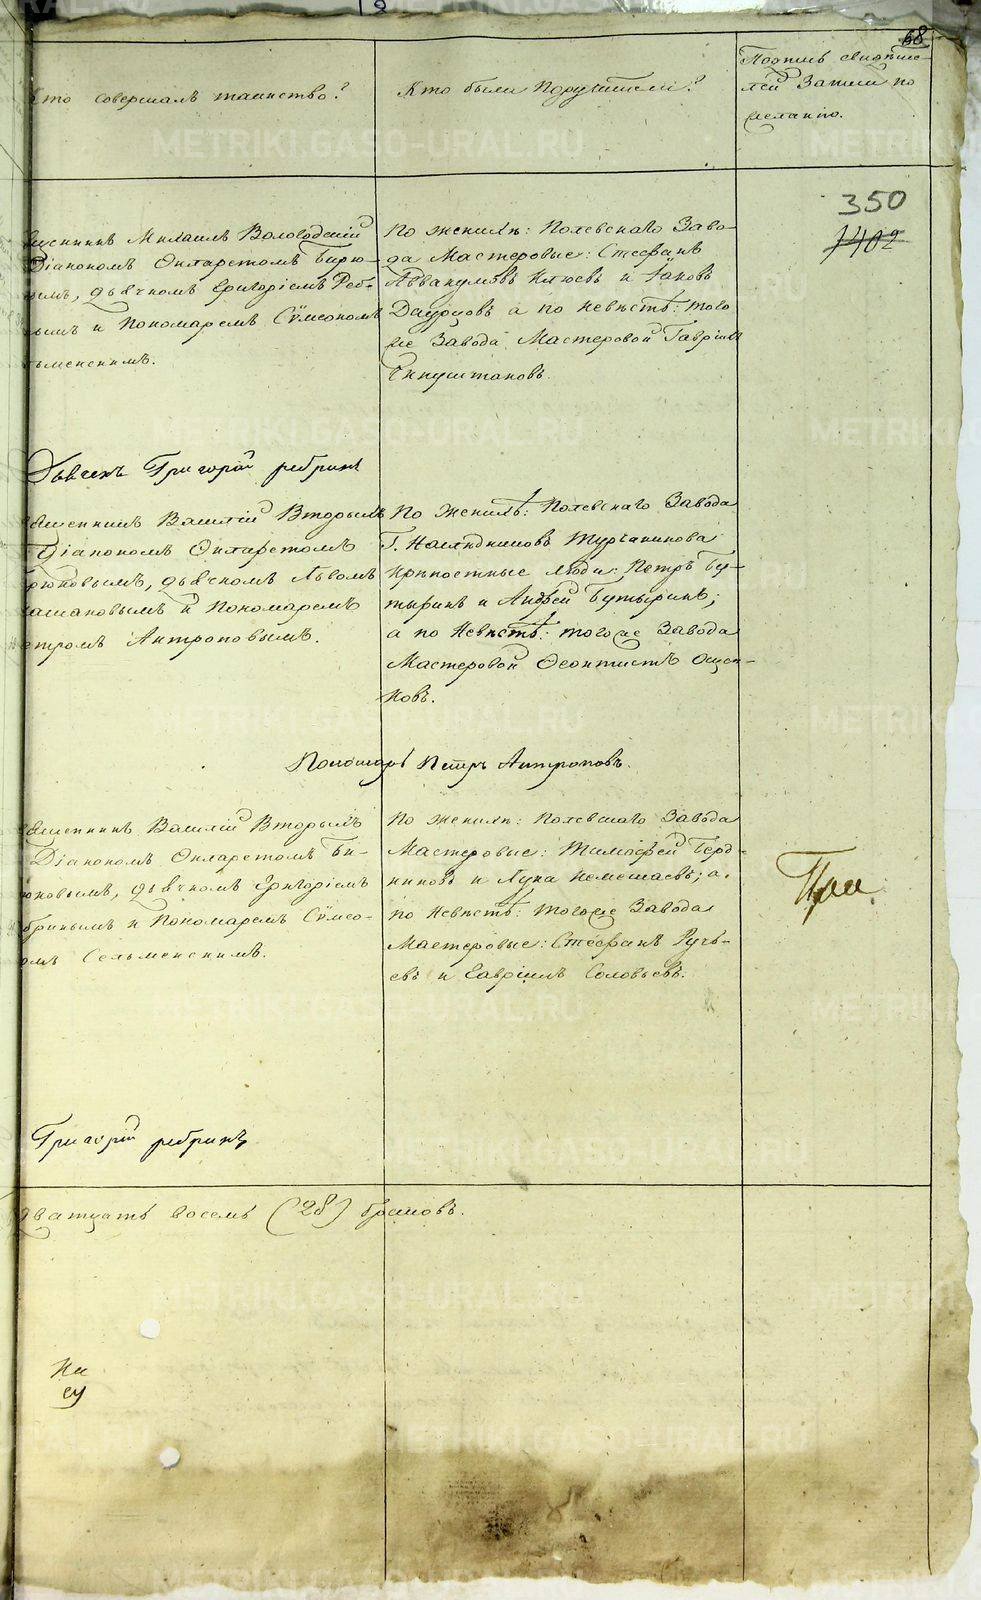 68
Кто совершалъ таинство?
Кто были Поручители?
Подпись свидѣте-
лей Записи по
желанію.
350
7402
щенникъ Михаилъ Вологодскій
Діакономъ Филаретомъ Бирю-
вымъ, дьячкомъ Григоріемъ Реб-
нымъ и Пономаремъ Сѵмеономъ
По женихѣ: Полевскаго Заво-
да Мастеровые: Стефанъ
Аввакумовъ Клюевъ и Іаковъ
а по невѣстѣ: того
же Завода Мастеровой Гавріилъ
Дьячекъ Григорій ребринъ
священникъ Василій Вторымъ
Діакономъ Филаретомъ
рюковымъ, дьячкомъ Львомъ
и Пономаремъ
етромъ Антроповымъ.
По женихѣ: Полевскаго Завода
Г. Наслѣдниковъ Турчанинова
крѣпостные люди: Петръ Бу-
тыринъ и Андрей Бутыринъ;
а по невѣстѣ: того же Завода
Мастеровой Феоктистъ Ощеп-
ковъ.
Пономарь Петръ Антроповъ.
священникъ Василій Вторымъ
Діакономъ Филаретомъ Би-
рюковымъ, дьячкомъ Григоріемъ
бринымъ и Пономаремъ Сѵмео-
омъ Сельменскимъ.
По женихѣ: Полевскаго Завода
Мастеровые: Тимофей Берд-
никовъ и Лука Немешаевъ; а
по невѣстѣ: того же Завода
Мастеровые: Стефанъ Ручь-
евъ и Гавріилъ Соловьевъ.
Григорій ребринъ
дватцать восемь (28) браковъ.
METRIKI.GASO-URAL.RU